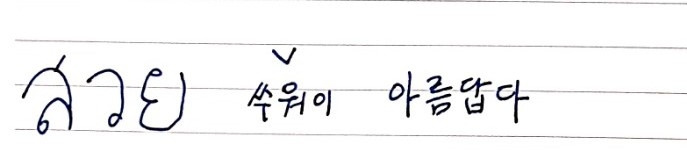 สวย ˅쑤워이 아름답다